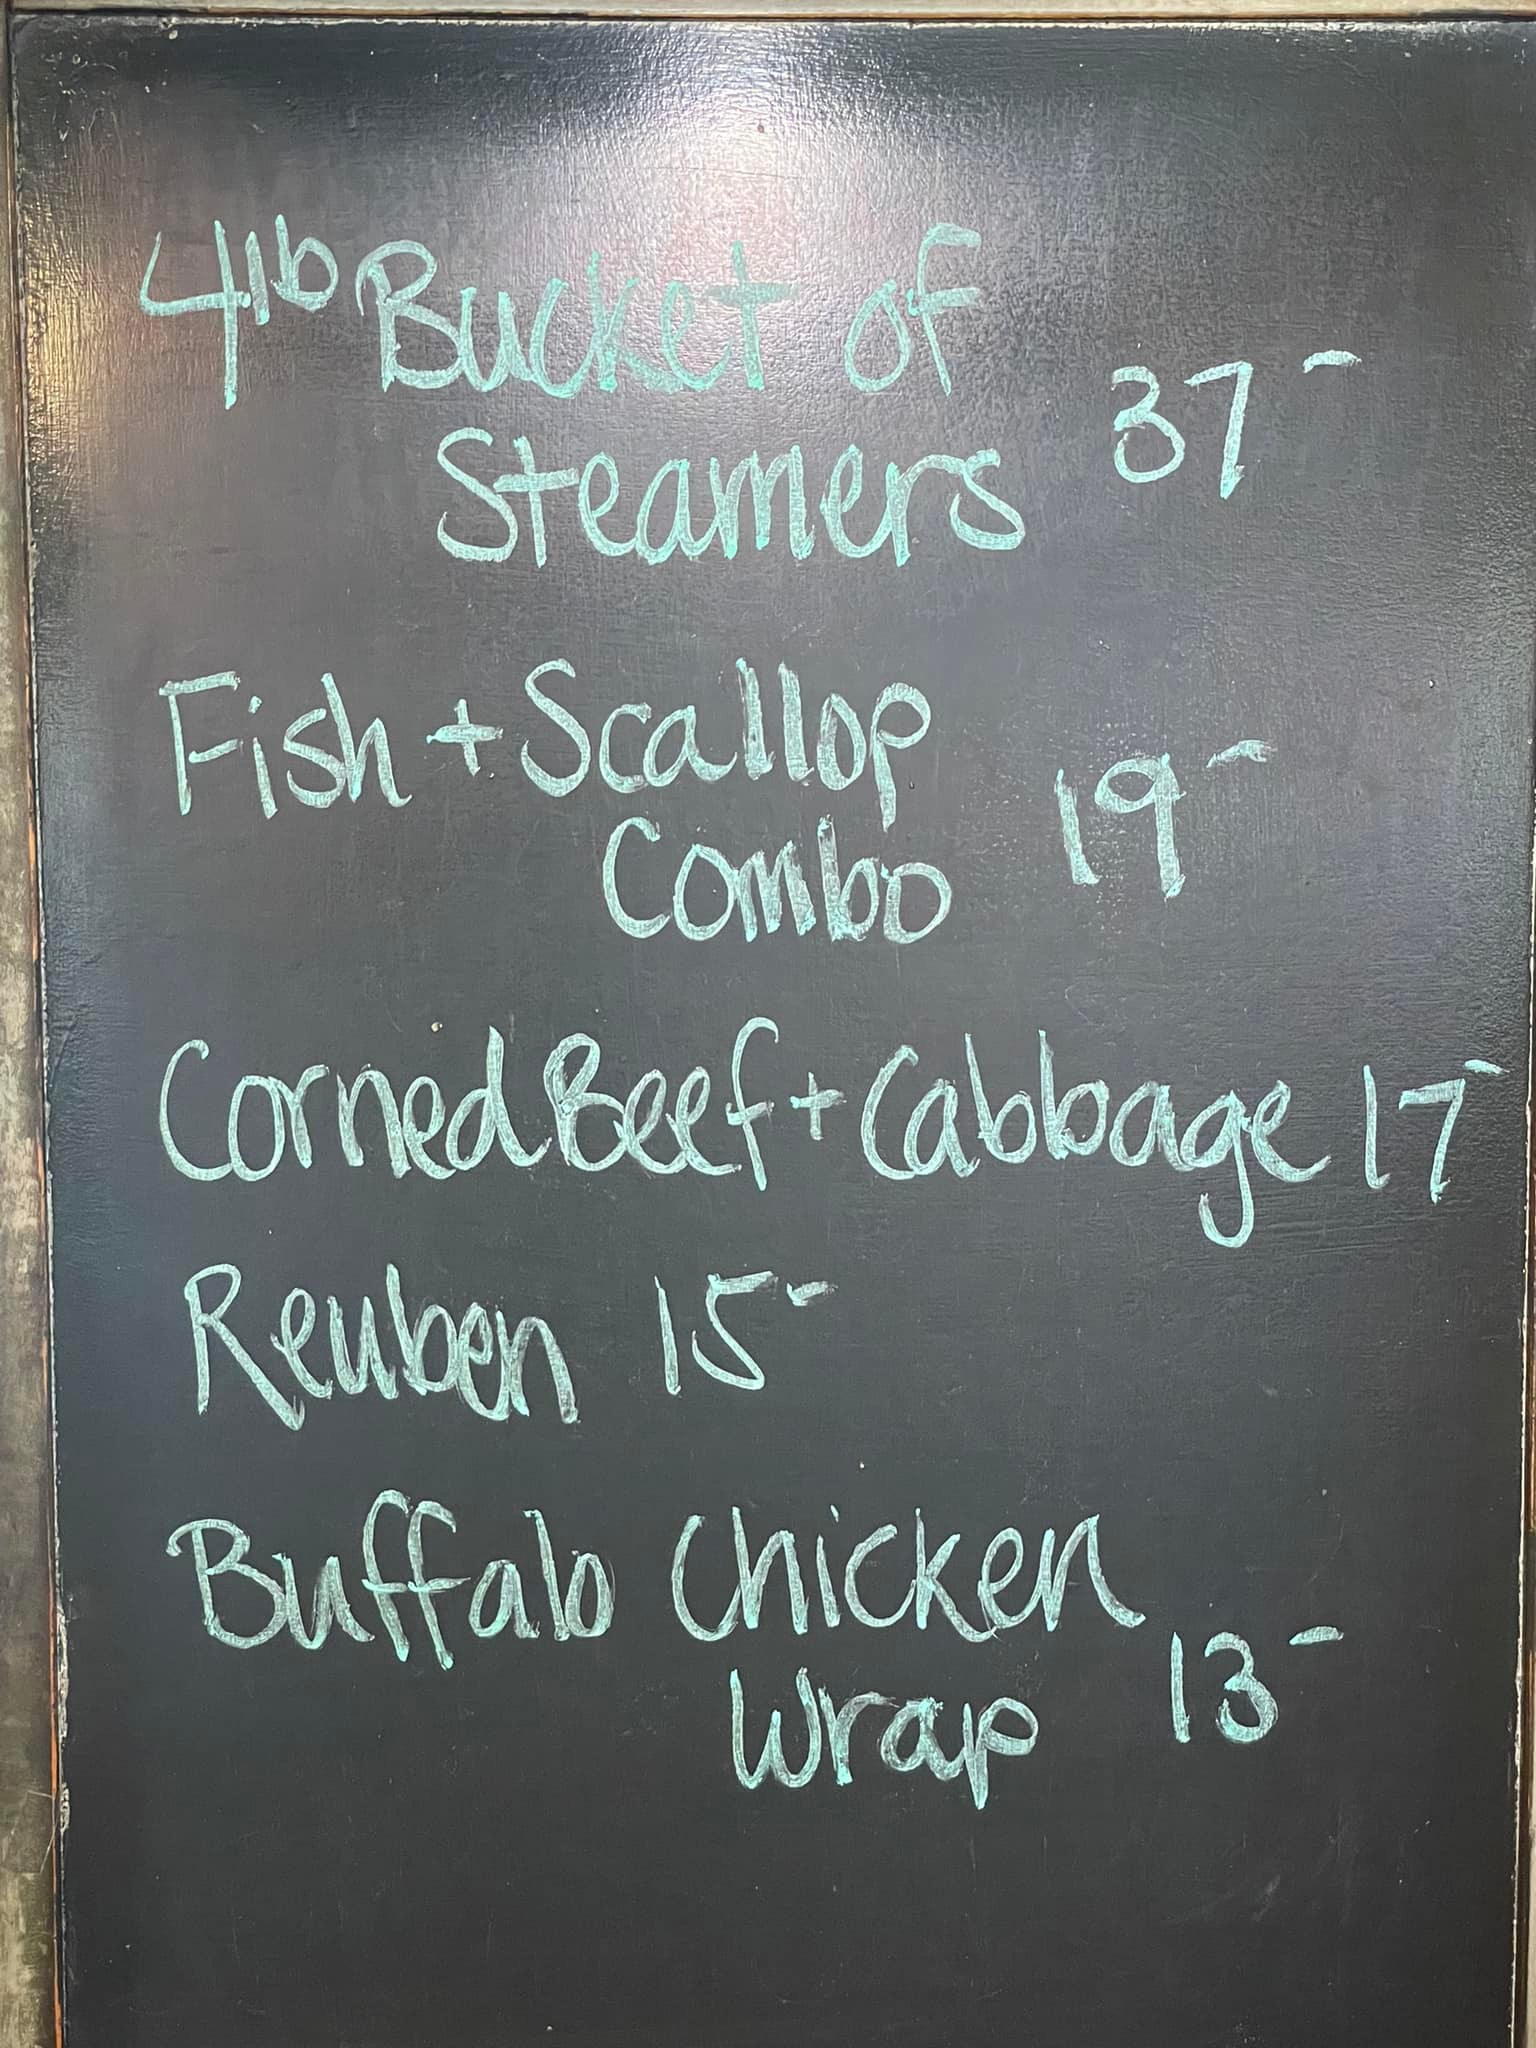 4lb Bucket of
Steamers 37-
Fish + Scallop
Combo 19-
Corned Beef + Cabbage 17-
Reuben 15-
Buffalo Chicken
Wrap 13-